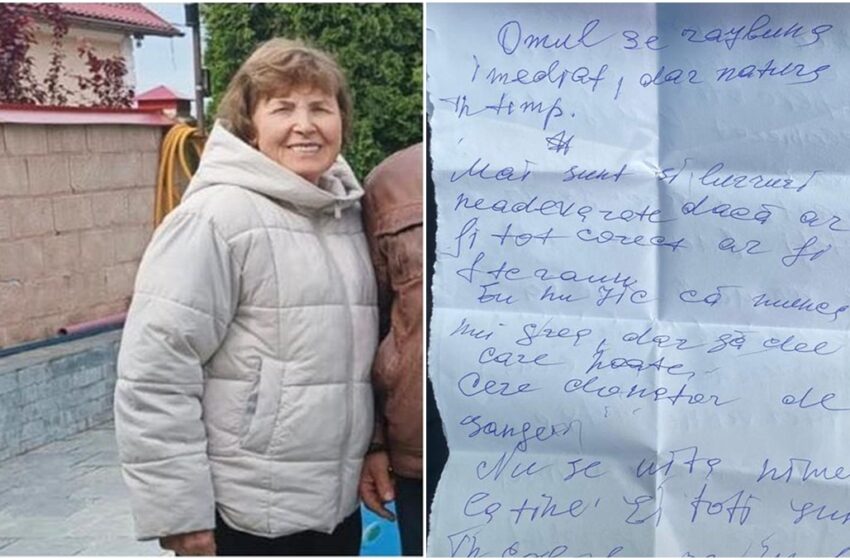 Omul se razbuna
imediat, dar natura
în timp.
Mai sunt și lucruri
neadevarate dacă ar
fi tot corect ar fi
Eu nu zic că munca
nu-i grea, dar să dee
care poate
Cere donator de
sange
Nu se uita nime
la tine. Ei toti sun